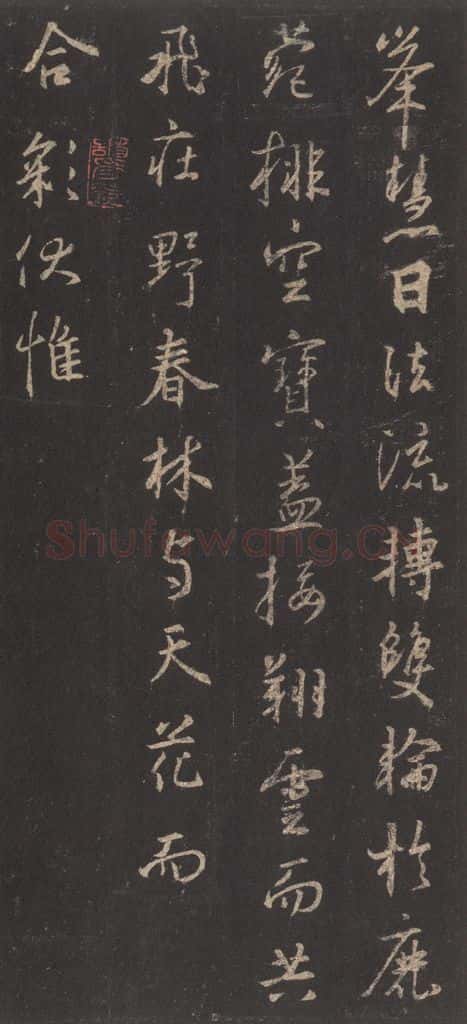 峯慧日法流轉雙輪於鹿
菀排空寶蓋接翔雲而共
飛莊野春林與天花而
合彩伏惟
Shufawang.cn